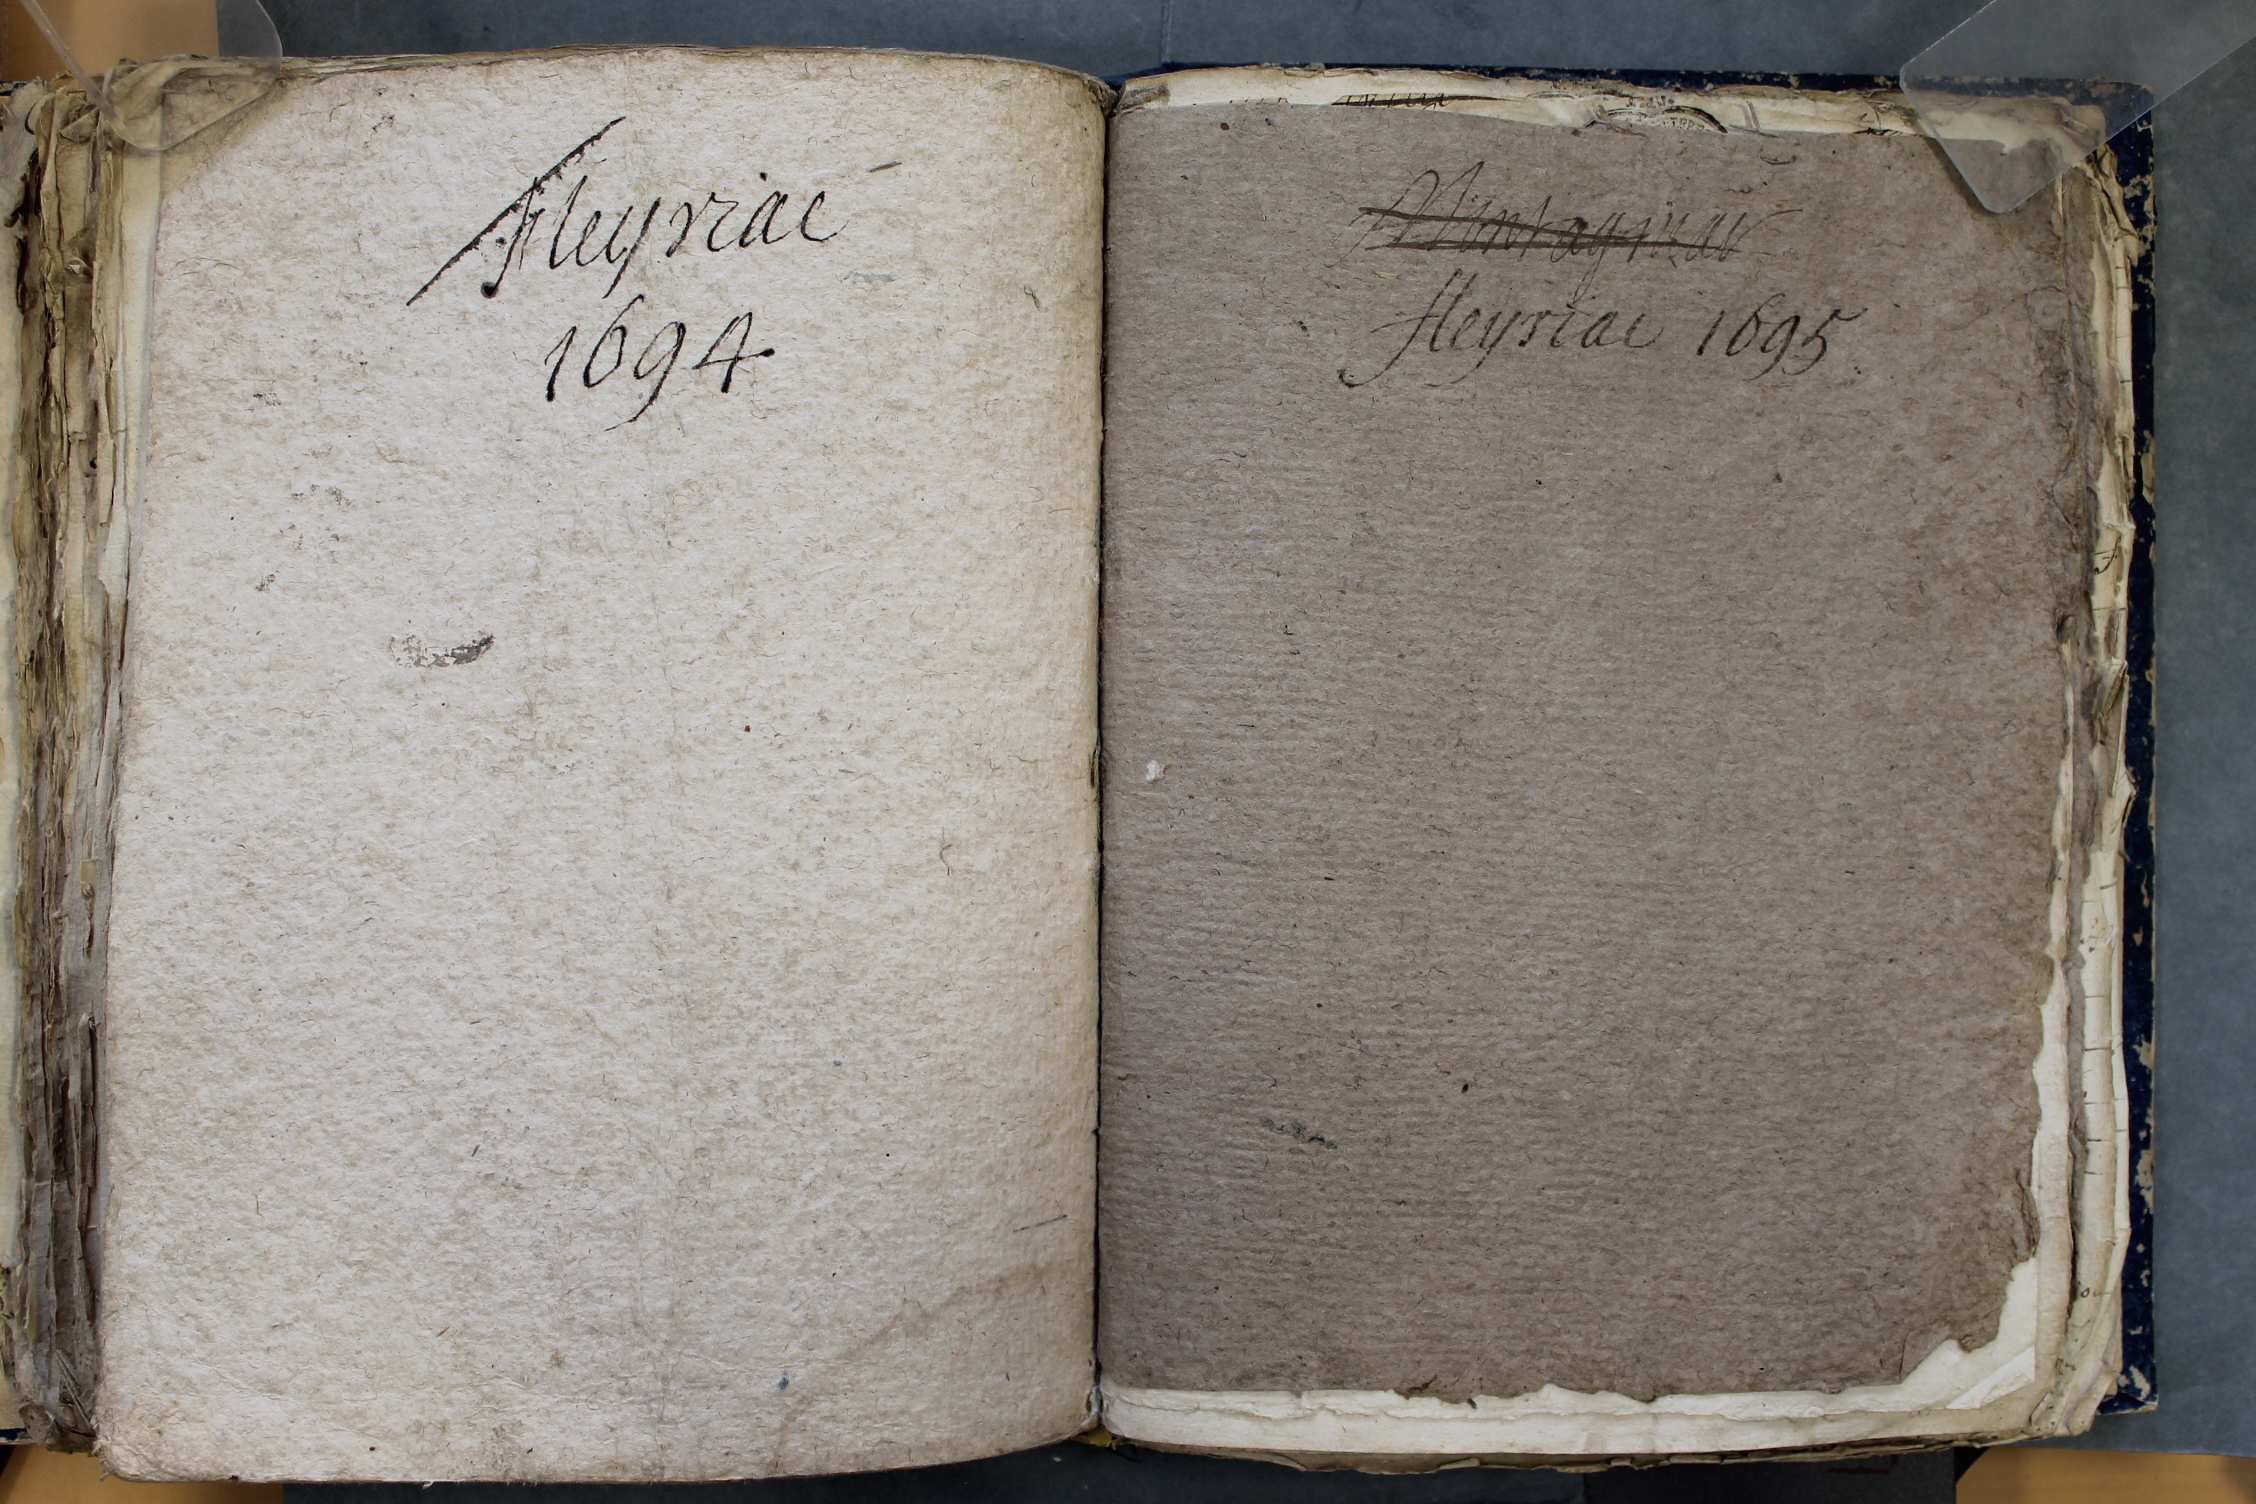 fleyriac
1694
Montagniac
fleyriac 1695